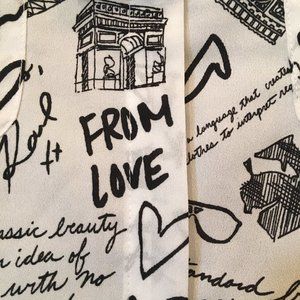 Karl
FROM
LOVE
a language that creates
clothes to interpret
assic beauty
n idea of
with no
standard